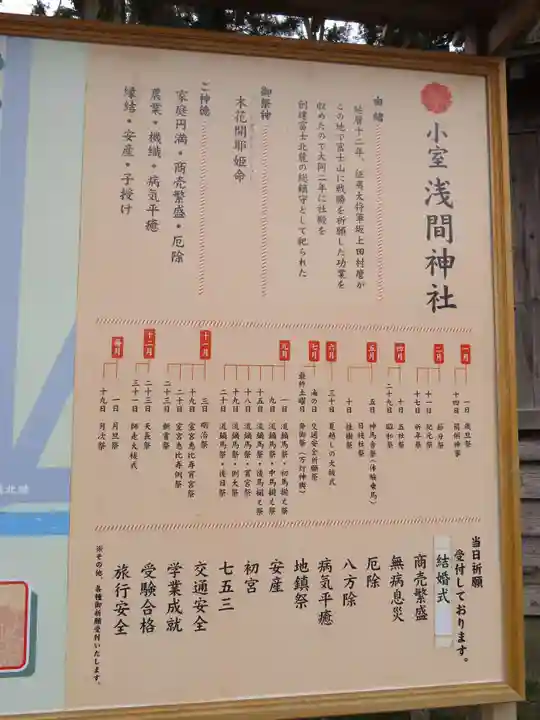 小室浅間神社
由緒
延暦十二年、征夷大将軍坂上田村麿が
この地で富士山に戦勝を祈願した功業を
収めたので大同二年に社殿を
創建富士北麓の総鎮守として祀られた
御祭神
木花開耶姫命
ご神徳
家庭円満・商売繁盛・厄除
農業・機織・病気平癒
縁結・安産・子授け
一月
一日 歳旦祭
十四日 筒粥神事
二月
節分祭
十一日 紀元祭
十七日 祈年祭
四月
十日 五社祭
二十九日 昭和祭
五月
五日 神馬舎祭(体験乗馬)
日枝社祭
十日 植樹祭
六月
三十日 夏越しの大祓式
七月
海の日 交通安全祈願祭
最終土曜日 奉御祭(万灯神輿)
九月
一日 流鏑馬祭・初馬揃え祭
九日 流鏑馬祭・中馬揃え祭
十五日 流鏑馬祭・後馬揃え祭
十八日 流鏑馬祭・宵宮祭
十九日 流鏑馬祭・例大祭
二十日 流鏑馬祭・後日祭
十一月
三日 明治祭
十九日 宮宮恵比寿宵宮祭
二十日 宮宮恵比寿例祭
二十三日 新嘗祭
十二月
二十三日 天長祭
三十一日 師走大祓式
毎月
一日 月旦祭
十九日 月次祭
当日祈願
受付しております。
結婚式
商売繁盛
無病息災
厄除
八方除
病気平癒
地鎮祭
安産
初宮
七五三
交通安全
学業成就
受験合格
旅行安全
※その他、各種御祈願受付いたします。